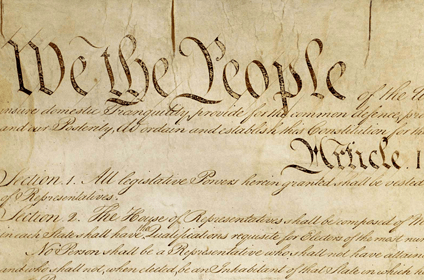 We the People of the U
insure domestic Tranquility, provide for the common defence, pro
and our Posterity, do ordain and establish this Constitution for the
Article. I
Section. 1. All legislative Powers herein granted shall be vested
of Representatives.
Section. 2. The House of Representatives shall be composed of M
in each State shall have the Qualifications requisite for Electors of the most num
No Person shall be a Representative who shall not have attain
and who shall not, when elected, be an Inhabitant of that State in which he